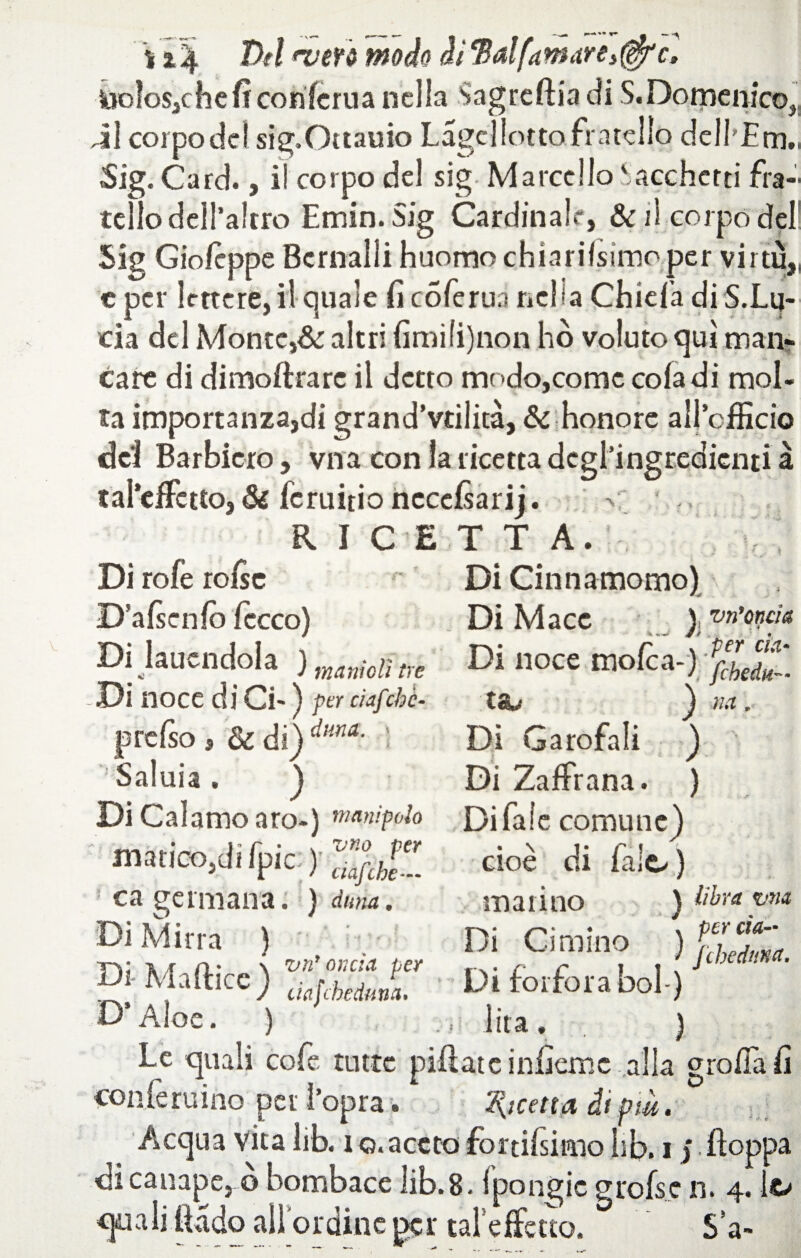 124 Del vero modo di Balsamare,&c.
uolos,che si conserua nella Sagrestia di S.Domenico,
il corpo del sig.Ottauio Lāgellotto fratello dell'Em.
Sig. Card., il corpo del sig Marcello Sacchetti fra-
tello dell'altro Emin. Sig Cardinale, & il corpo del
Sig Gioseppe Bernalli huomo chiarissimo per virtù,
e per lettere, il quale si cōserua nella Chiesa di S.Lu-
cia del Monte,& altri simili)non hò voluto quì man-
care di dimostrare il detto modo,come cosa di mol-
ta importanza,di grand'vtilità, & honore all'officio
del Barbiero, vna con la ricetta degl'ingredienti à
tal'effetto, & seruitio necessarij.
RICETTA.
Di rose rosse
D'assenso secco)
Di lauendola ) manioli tre
Di noce di Ci- ) per ciasche-
presso, & di) duna.
Saluia. )
Di Calamo aro-) manipolo
matico,di spic ) vno per ciasche--
ca germana. ) duna.
Di Mirra )
Di Mastice ) vn' oncia per ciascheduna.
D'Aloe. )
Di Cinnamomo)
Di Mace ) vn'oncia
Di noce mosca-) per cia- schedu--
ta ) na.
Di Garofali )
Di Zaffrana. )
Di sale comune)
cioè di sale)
marino ) libra vna
Di Cimino ) per cia-- scheduna.
Di forfora bol-)
lita. )
Le quali cose tutte pistate insieme alla grossa si
conseruino per l'opra. Ricetta di più.
Acqua vita lib. 10.aceto fortissimo lib. 15 stoppa
di canape, ò bombace lib.8. spongie grosse n. 4. le
quali stādo all'ordine per tal'effetto. S'a-